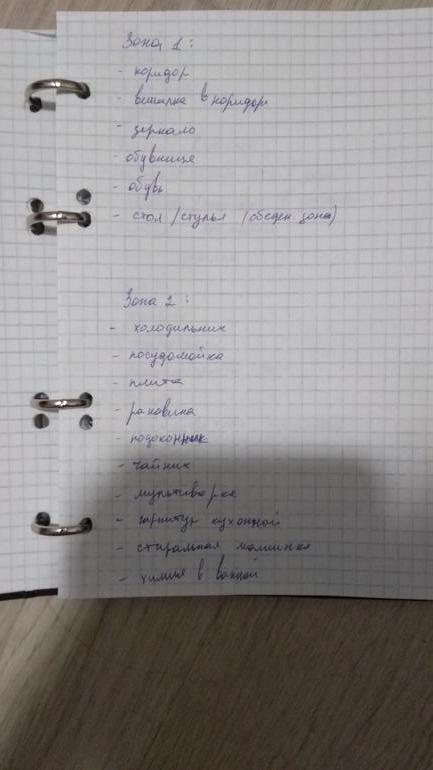 Зона 1:
- коридор
- вешалка в коридоре
- зеркало
- обувница
- обувь
- стол / стулья (обеден зона)
Зона 2:
- холодильник
- посудомойка
- плита
- раковина
- подоконник
- чайник
- мультиварка
- гарнитур кухонный
- стиральная машинка
- химия в ванной